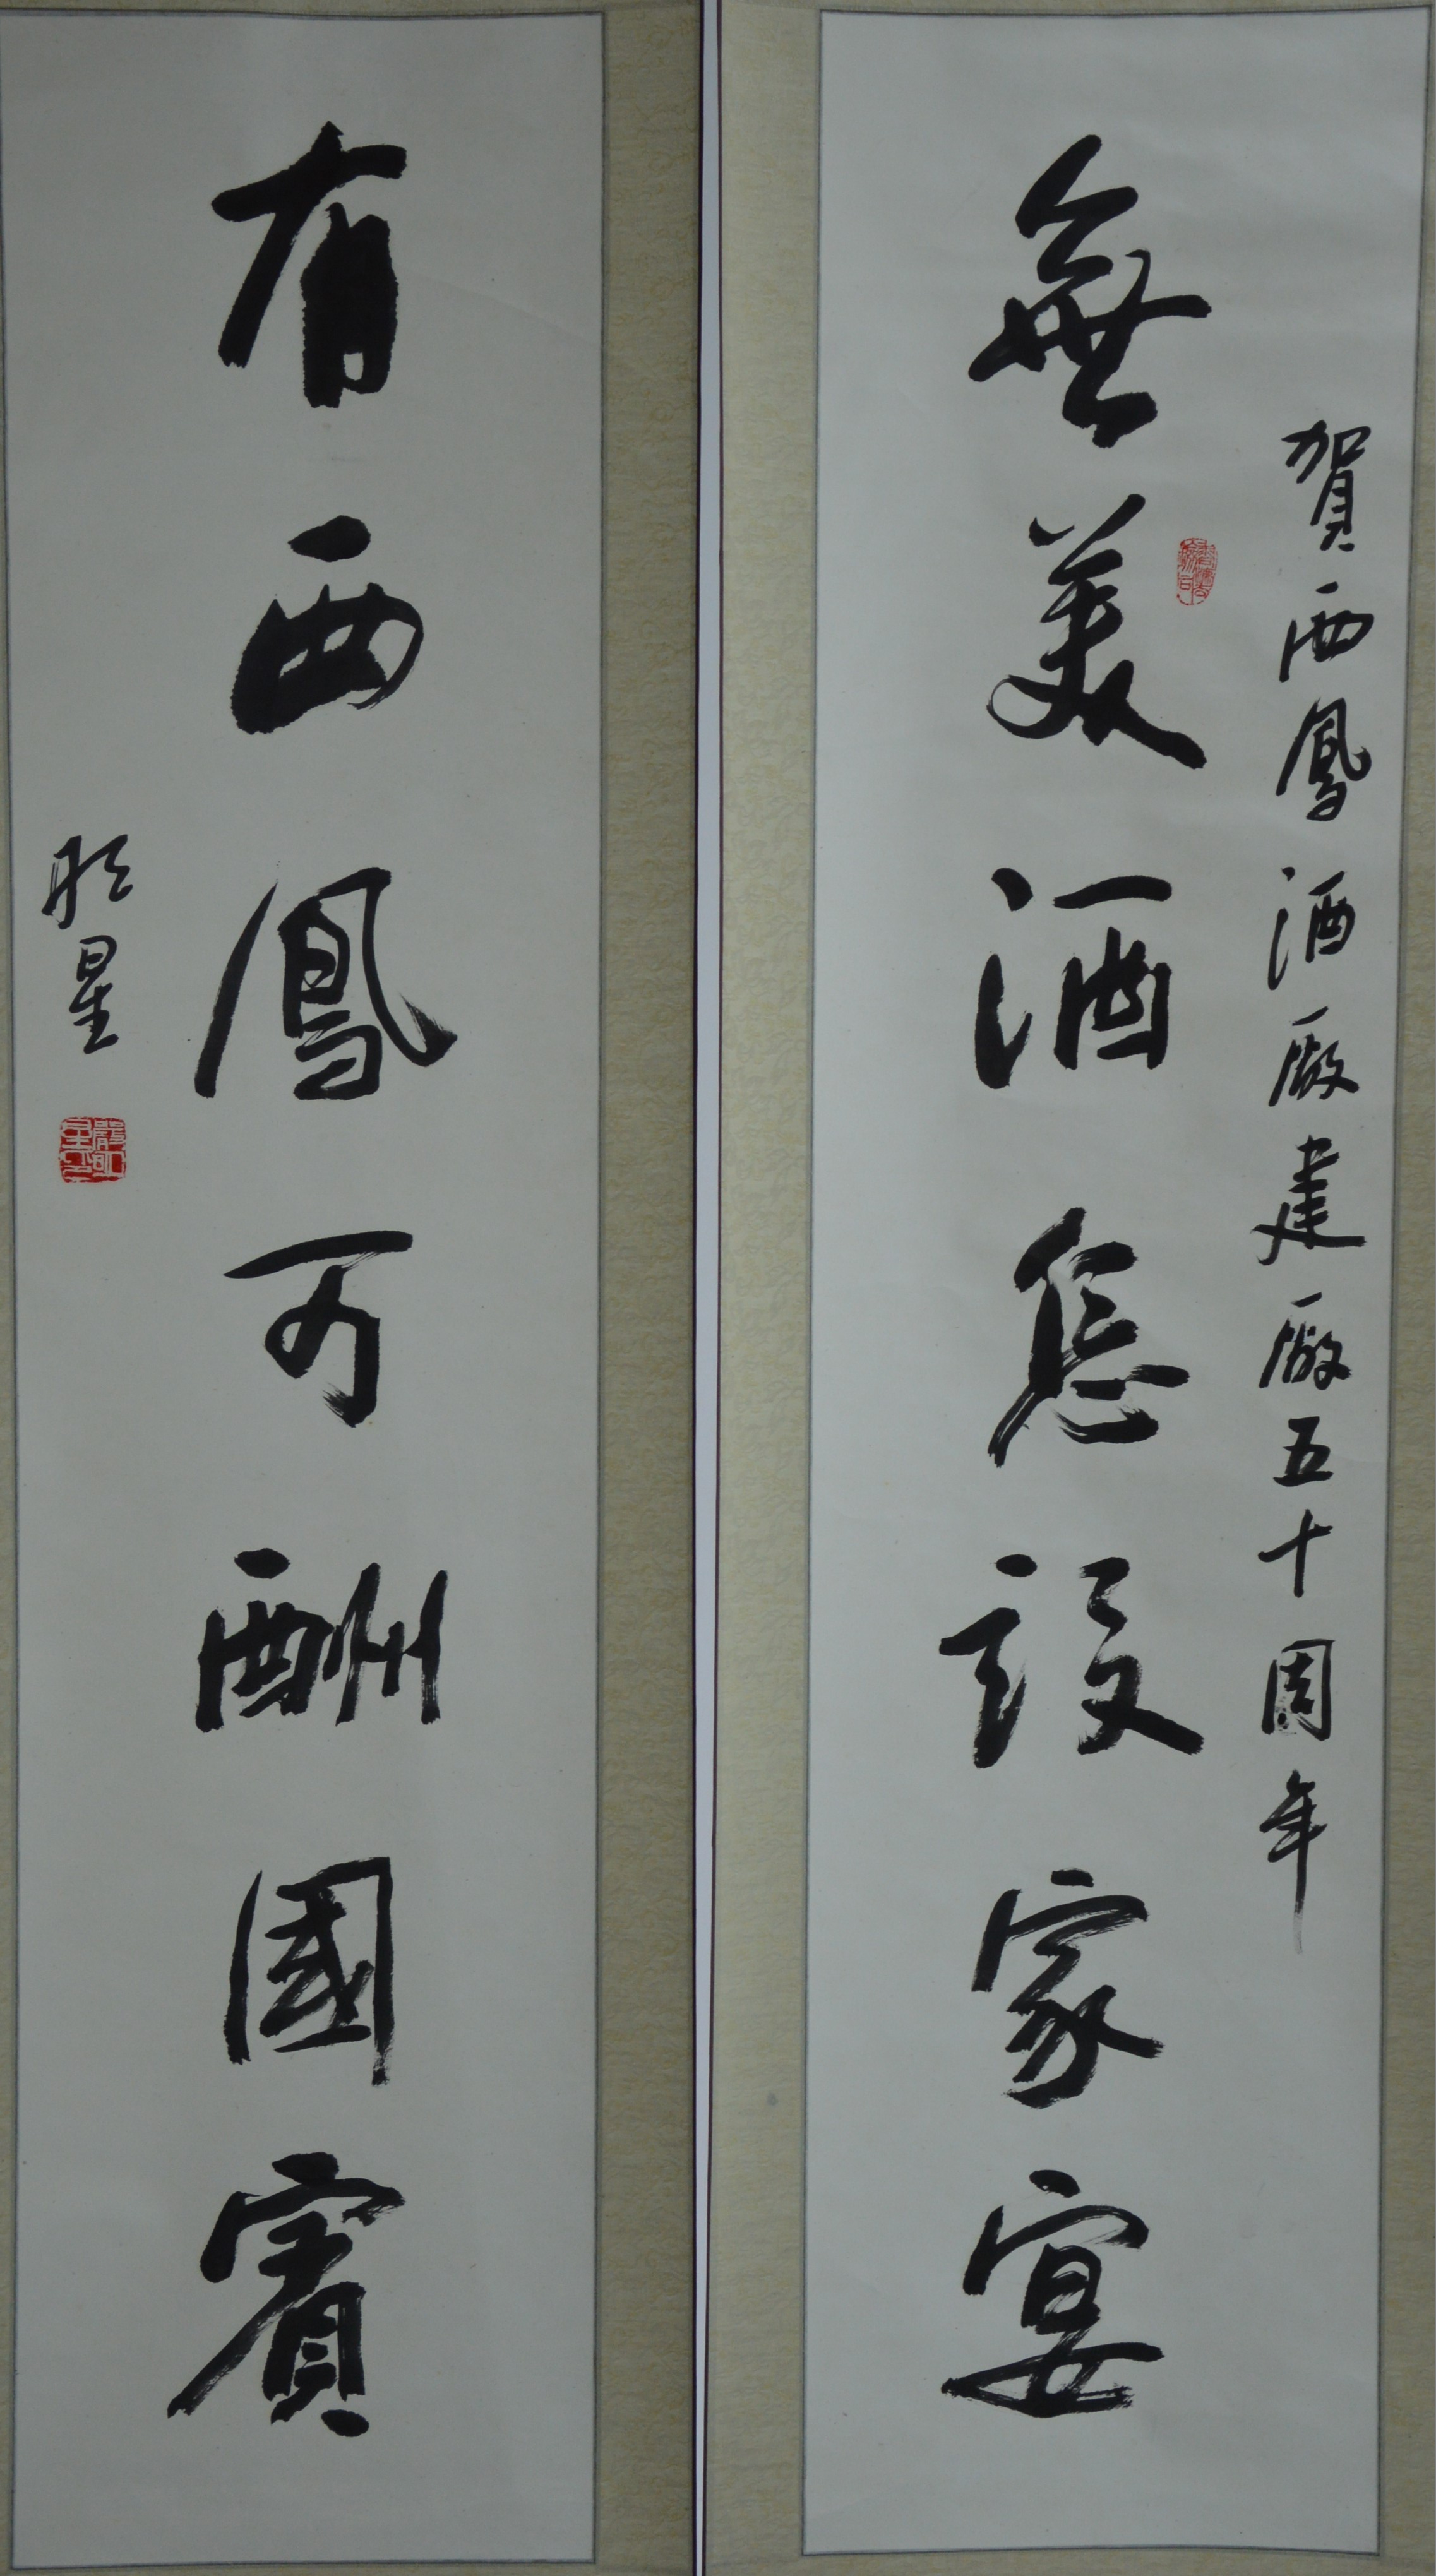 賀西鳳酒廠建廠五十周年
無美酒怎設家宴
有西鳳可酬國賓